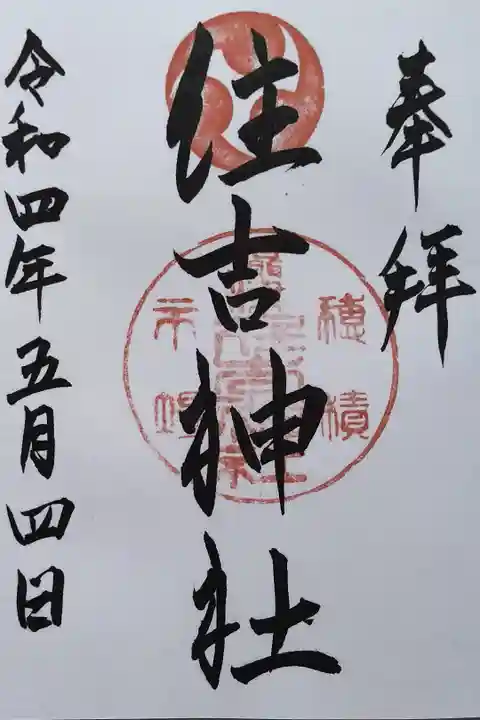 奉拝
住吉神社
穂積
令和四年五月四日